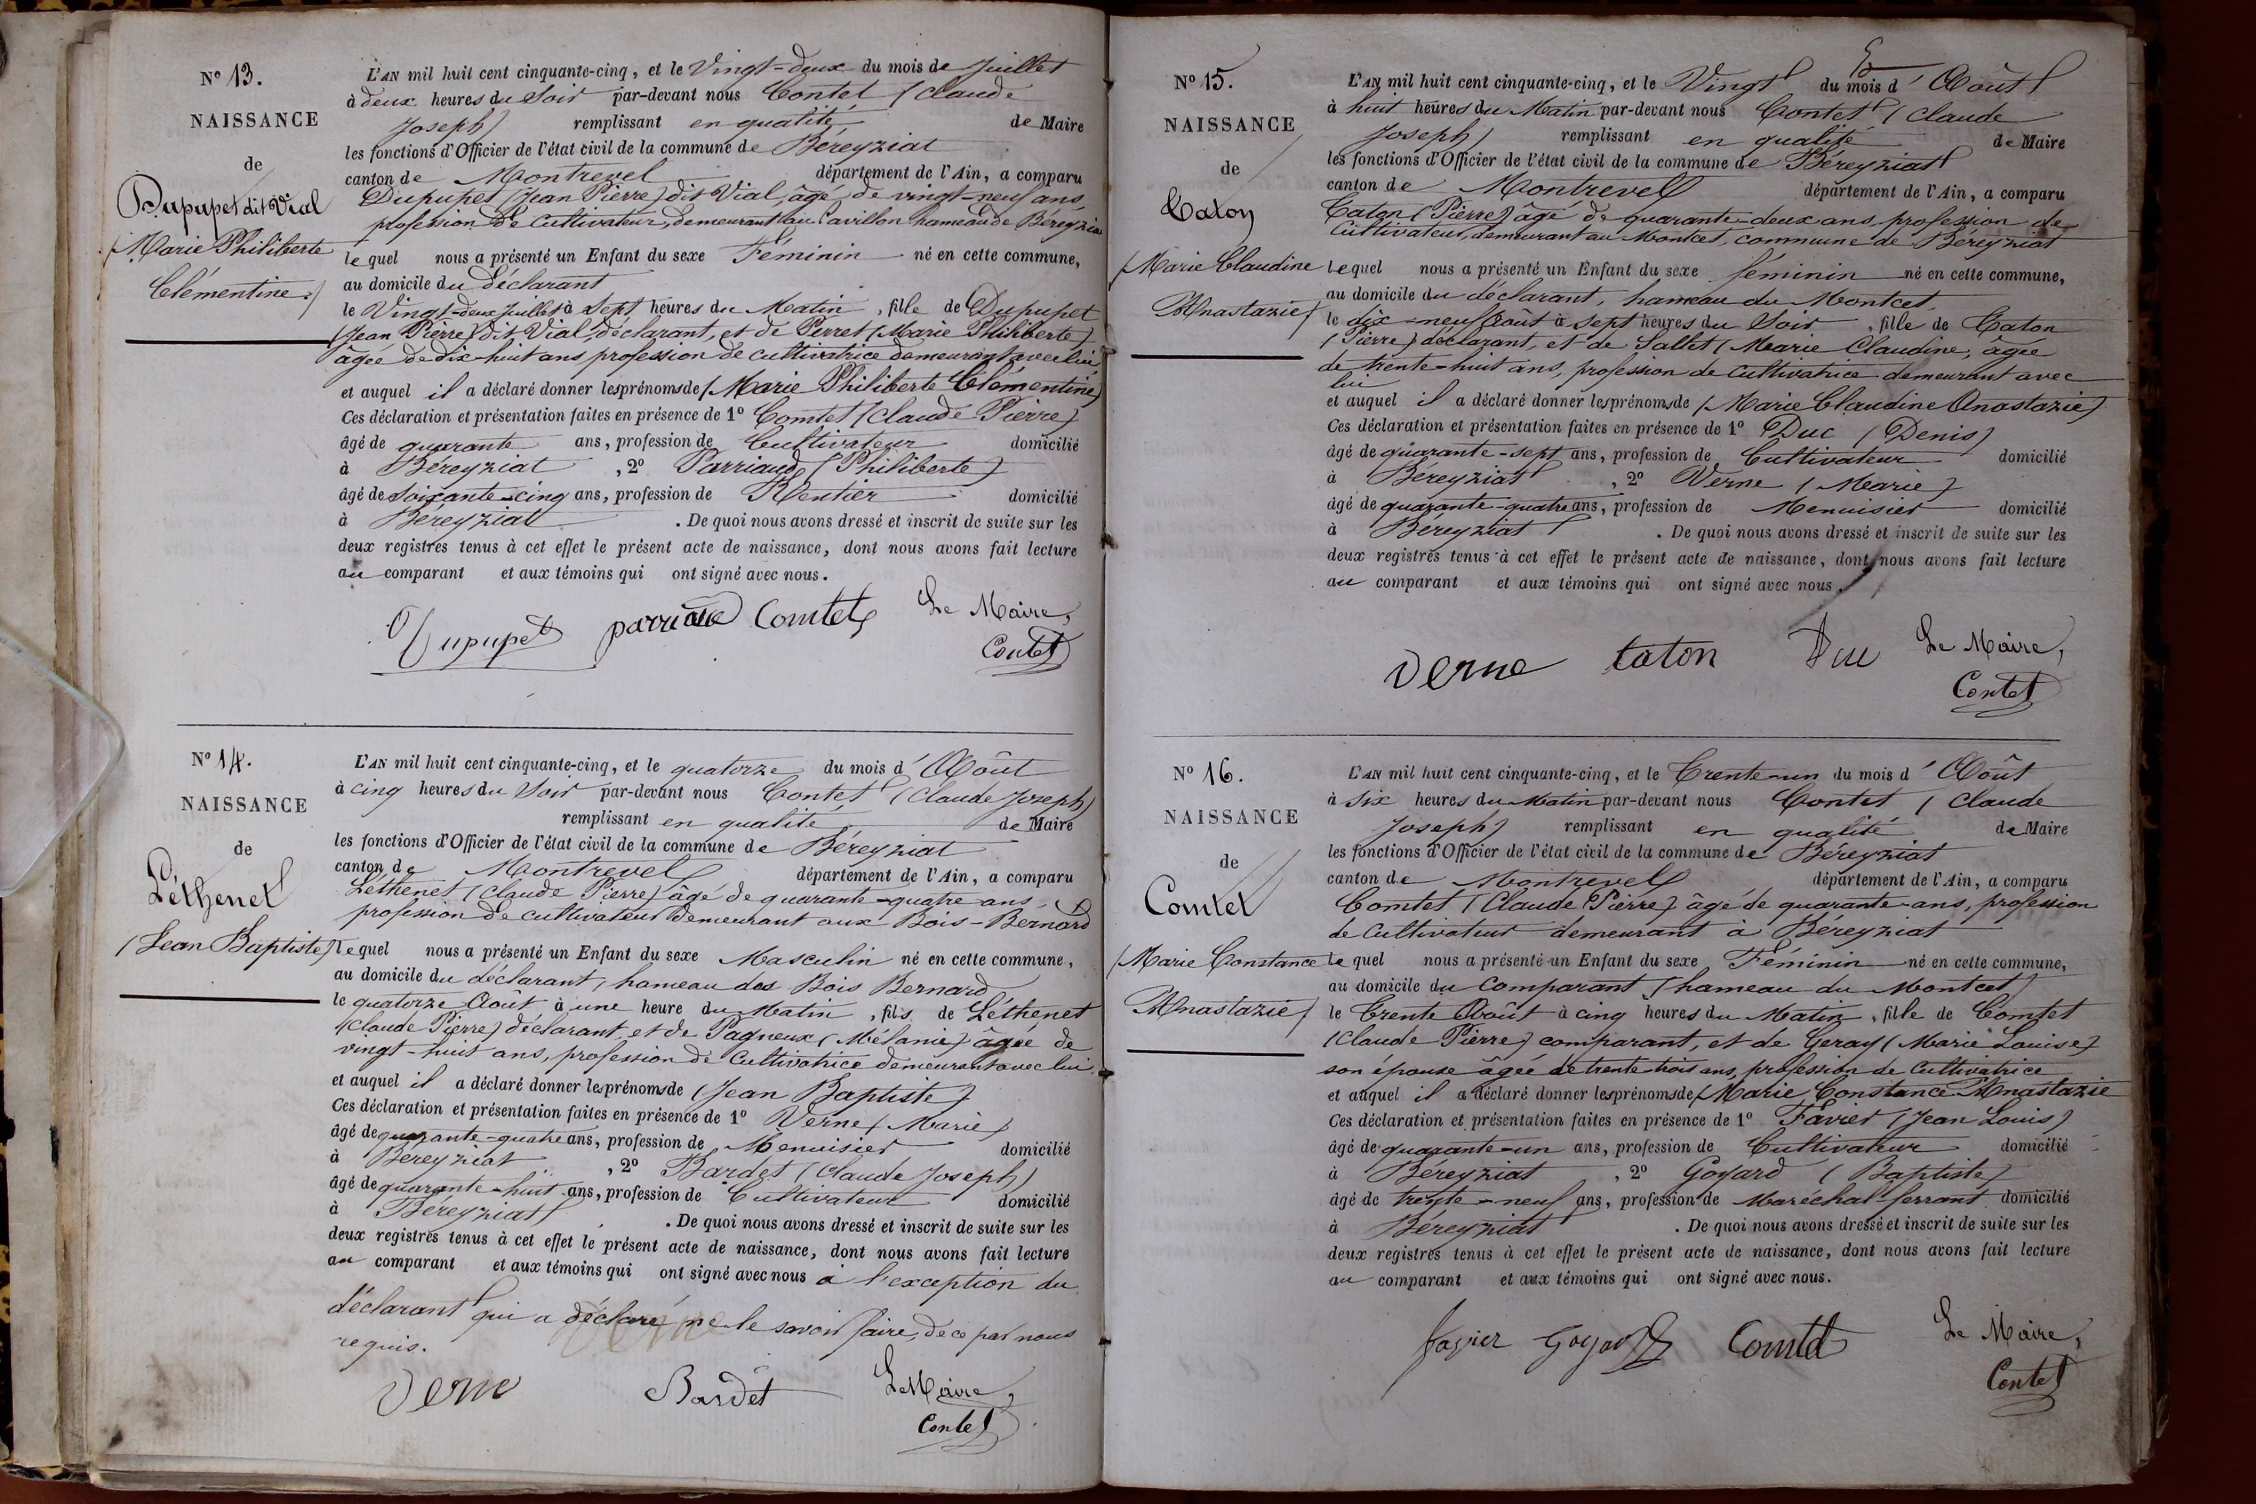 N° 13.
NAISSANCE
de
Dupupet dit Vial
(Marie Philiberte
Clémentine.)
L'AN mil huit cent cinquante-cinq, et le Vingt-deux du mois de Juillet
à deux heures du Soir par-devant nous Contet (Claude
Joseph) remplissant en qualité de Maire
les fonctions d'Officier de l'état civil de la commune de Béreyziat
canton de Montrevel département de l'Ain, a comparu
Dupupet (Jean Pierre) dit Vial, âgé de vingt-neuf ans,
profession de Cultivateur, demeurant au Pavillon hameau de Béreyziat
lequel nous a présenté un Enfant du sexe Féminin né en cette commune,
au domicile du déclarant
le Vingt-deux Juillet à Sept heures du Matin, fille de Dupupet
(Jean Pierre) dit Vial, déclarant, et de Perret (Marie Philiberte)
âgée de dix-huit ans profession de cultivatrice demeurant avec lui
et auquel il a déclaré donner les prénoms de (Marie Philiberte Clémentine)
Ces déclaration et présentation faites en présence de 1° Comtet (Claude Pierre)
âgé de quarante ans, profession de Cultivateur domicilié
à Béreyziat, 2° Parriaud (Philiberte)
âgé de soixante-cinq ans, profession de Rentier domicilié
à Béreyziat. De quoi nous avons dressé et inscrit de suite sur les
deux registres tenus à cet effet le présent acte de naissance, dont nous avons fait lecture
au comparant et aux témoins qui ont signé avec nous.
Dupupet parriaud Comtet Le Maire,
Contet
N° 14.
NAISSANCE
de
Léthenet
(Jean Baptiste)
L'AN mil huit cent cinquante-cinq, et le quatorze du mois d'Août
à cinq heures du Soir par-devant nous Contet (Claude Joseph)
remplissant en qualité de Maire
les fonctions d'Officier de l'état civil de la commune de Béreyziat
canton de Montrevel département de l'Ain, a comparu
Léthenet (Claude Pierre) âgé de quarante-quatre ans,
profession de cultivateur demeurant aux Bois-Bernard
lequel nous a présenté un Enfant du sexe Masculin né en cette commune,
au domicile du déclarant, hameau des Bois Bernard
le quatorze Août à une heure du Matin, fils de Léthenet
(Claude Pierre) déclarant, et de Pagneux (Mélanie) âgée de
vingt-huit ans, profession de Cultivatrice demeurant avec lui
et auquel il a déclaré donner les prénoms de (Jean Baptiste)
Ces déclaration et présentation faites en présence de 1° Verne (Marie)
âgé de quarante-quatre ans, profession de Menuisier domicilié
à Béreyziat, 2° Bardet (Claude Joseph)
âgé de quarante-huit ans, profession de Cultivateur domicilié
à Béreyziat. De quoi nous avons dressé et inscrit de suite sur les
deux registres tenus à cet effet le présent acte de naissance, dont nous avons fait lecture
au comparant et aux témoins qui ont signé avec nous à l'exception du
déclarant qui a déclaré ne le savoir faire, de ce par nous
requis.
Verne Bardet Le Maire,
Contet
N° 15.
NAISSANCE
de
Caton
(Marie Claudine
Anastazie)
L'AN mil huit cent cinquante-cinq, et le Vingt du mois d'Août
à huit heures du Matin par-devant nous Contet (Claude
Joseph) remplissant en qualité de Maire
les fonctions d'Officier de l'état civil de la commune de Béreyziat
canton de Montrevel département de l'Ain, a comparu
Caton (Pierre) âgé de quarante-deux ans, profession de
Cultivateur, demeurant au Montcet, commune de Béreyziat
lequel nous a présenté un Enfant du sexe féminin né en cette commune,
au domicile du déclarant, hameau du Montcet,
le dix-neuf Août à sept heures du Soir, fille de Caton
(Pierre) déclarant, et de Sallet (Marie Claudine, âgée
de trente-huit ans, profession de Cultivatrice demeurant avec
lui
et auquel il a déclaré donner les prénoms de (Marie Claudine Anastazie)
Ces déclaration et présentation faites en présence de 1° Duc (Denis)
âgé de quarante-sept ans, profession de Cultivateur domicilié
à Béreyziat, 2° Verne (Marie)
âgé de quarante-quatre ans, profession de Menuisier domicilié
à Béreyziat. De quoi nous avons dressé et inscrit de suite sur les
deux registres tenus à cet effet le présent acte de naissance, dont nous avons fait lecture
au comparant et aux témoins qui ont signé avec nous.
Verne Caton Duc Le Maire,
Contet
N° 16.
NAISSANCE
de
Comtet
(Marie Constance
Anastazie)
L'AN mil huit cent cinquante-cinq, et le Trente-un du mois d'Août
à six heures du Matin par-devant nous Contet (Claude
Joseph) remplissant en qualité de Maire
les fonctions d'Officier de l'état civil de la commune de Béreyziat
canton de Montrevel département de l'Ain, a comparu
Comtet (Claude Pierre) âgé de quarante ans, profession
de Cultivateur demeurant à Béreyziat
lequel nous a présenté un Enfant du sexe Féminin né en cette commune,
au domicile du Comparant (hameau du Montcet)
le Trente Août à cinq heures du Matin, fille de Comtet
(Claude Pierre) comparant, et de Geray (Marie Louise)
son épouse âgée de trente trois ans, profession de Cultivatrice
et auquel il a déclaré donner les prénoms de (Marie Constance Anastazie
Ces déclaration et présentation faites en présence de 1° Favier (Jean Louis)
âgé de quarante-un ans, profession de Cultivateur domicilié
à Béreyziat, 2° Goyard (Baptiste)
âgé de trente-neuf ans, profession de Maréchal-ferrant domicilié
à Béreyziat. De quoi nous avons dressé et inscrit de suite sur les
deux registres tenus à cet effet le présent acte de naissance, dont nous avons fait lecture
au comparant et aux témoins qui ont signé avec nous.
favier Goyard Comtet Le Maire,
Contet